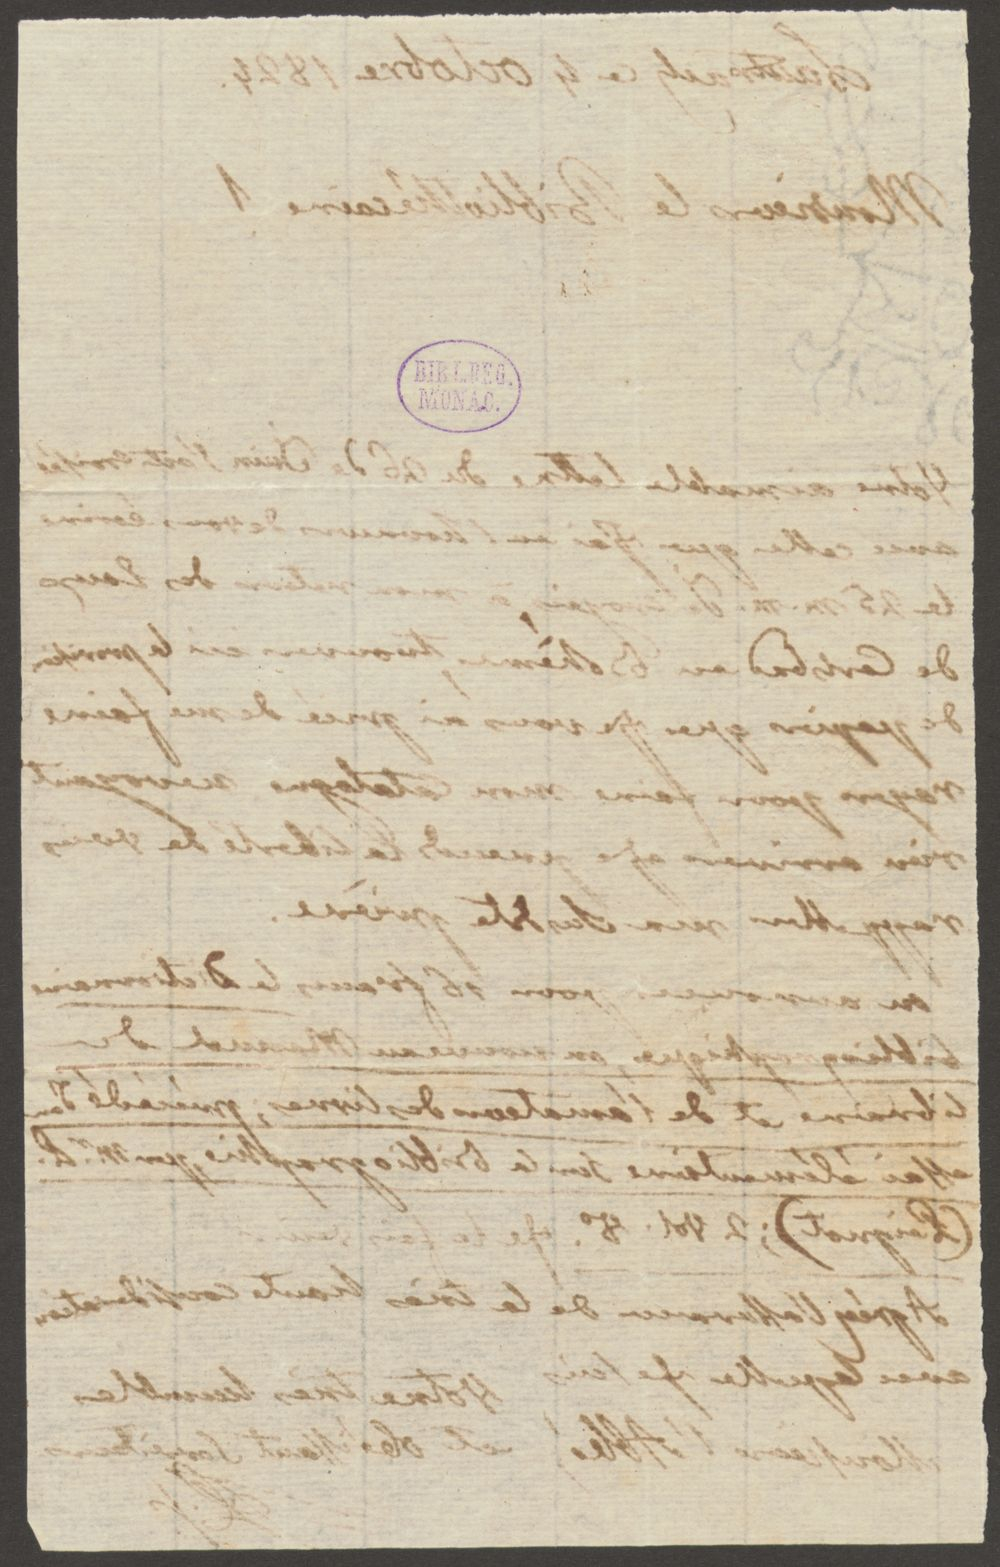 ce 4 octobre 1824.
Monsieur le Bibliothécaire !
BIBL. REG.
MONAC.
Votre aimable lettre du 26 de s'est croisée
avec celle que j'ai eu l'honneur de vous écrire
le 25 à mon retour des
de Carlsbad en Bohême, trouver ici la
de papier que je vous ai prié de me faire
pour faire mon Catalogue
rien arriver et je prends la liberté de vous
rappeller ma prière.
on annonce pour 16 francs le Dictionnaire
bibliographique, ou nouveau Manuel du
libraire et de l'amateur des livres; précédé d'un
essai élémentaire sur la bibliographie, par Mr. P.
(Peignot); 2 Vol. 8°. je le
Agréez l'assurance de la très haute considération
avec laquelle je suis
Monsieur l'Abbé! Votre très humble
et obéissant Serviteur